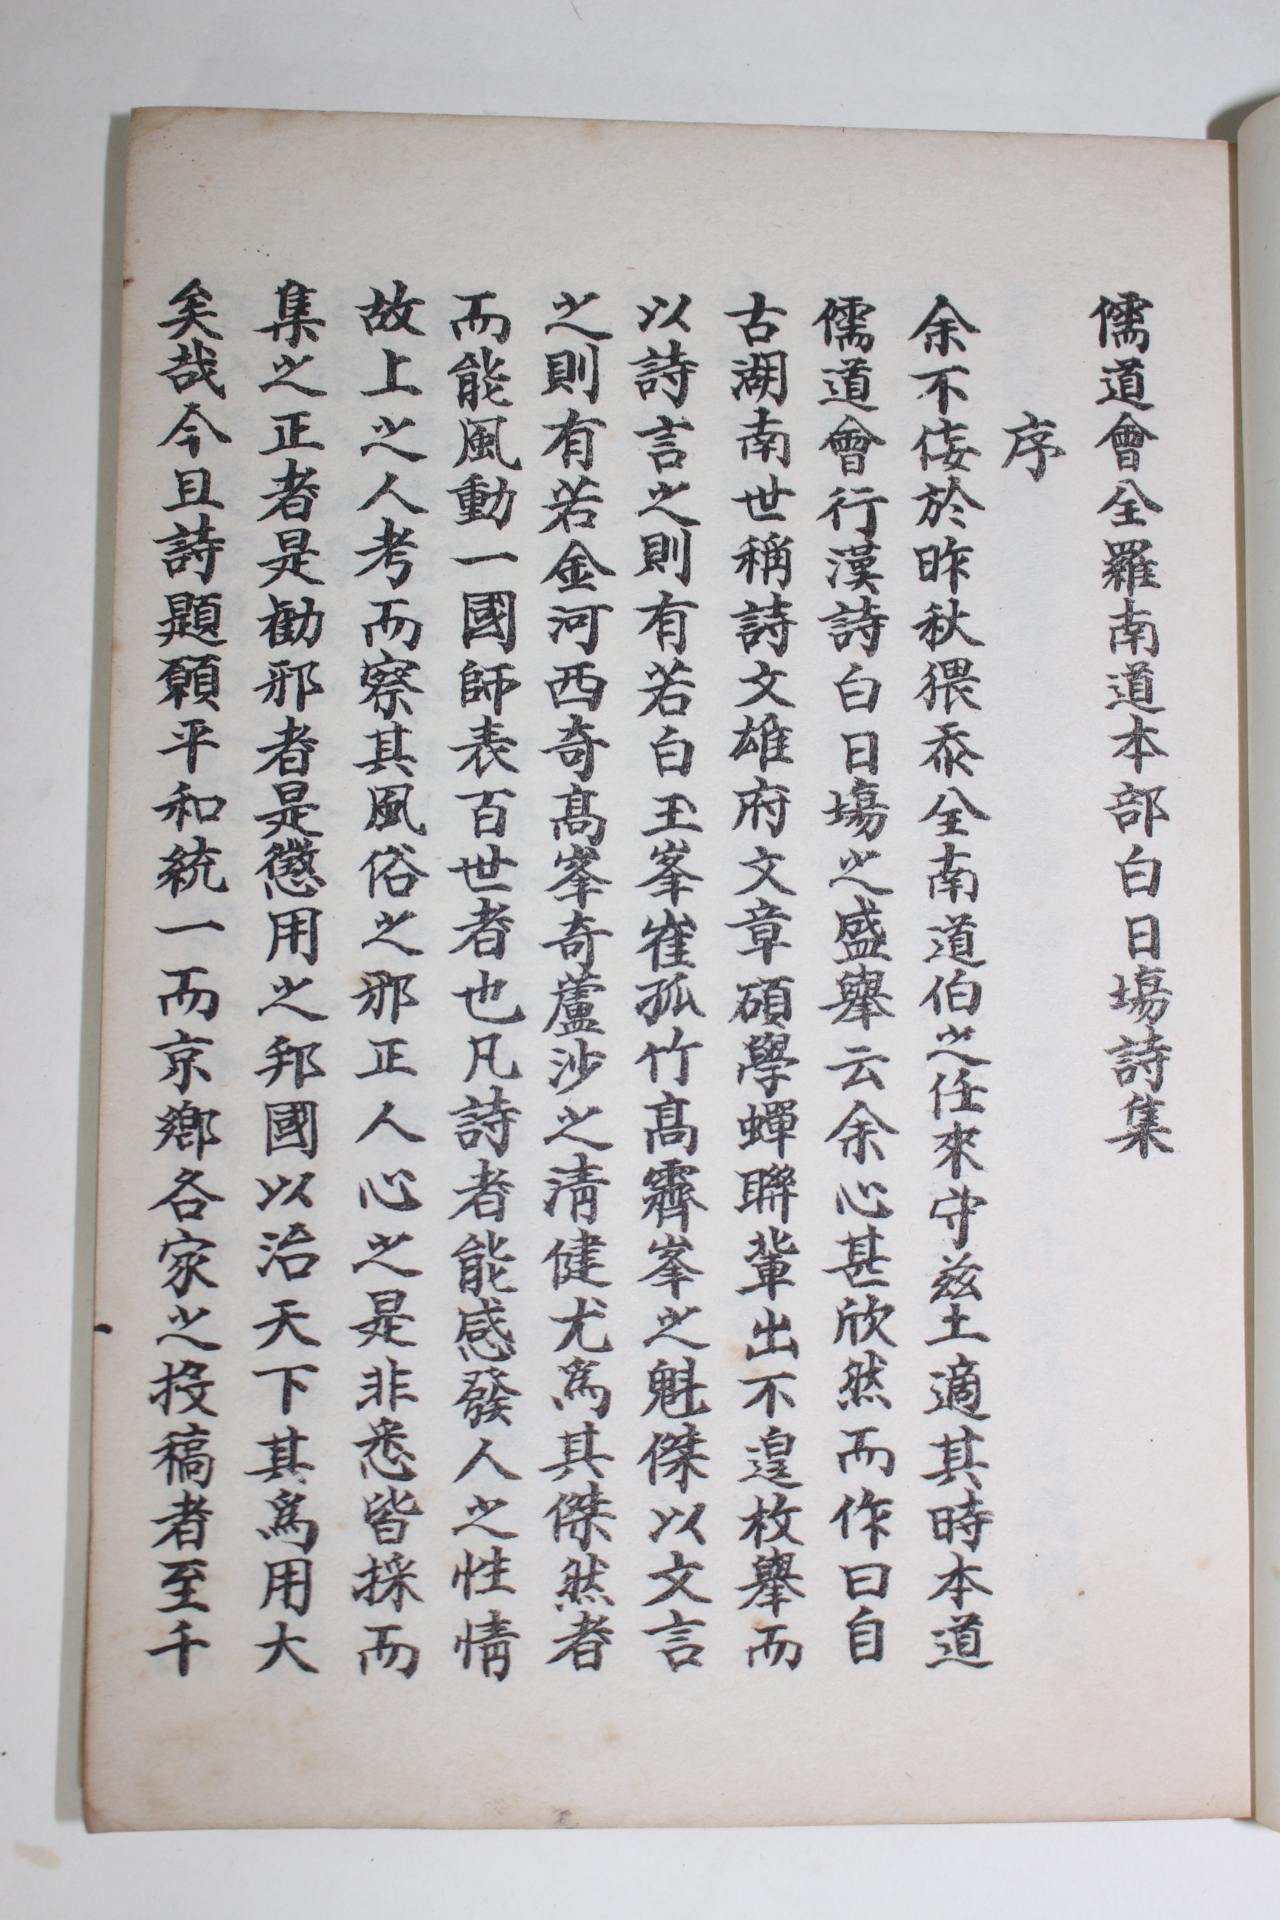 儒道會全羅南道本部白日場詩集
序
余不佞於昨秋猥忝全南道伯之任來守茲土適其時本道
儒道會行漢詩白日場之盛舉云余心甚欣然而作曰自
古湖南世稱詩文雄府文章碩學蟬聯輩出不遑枚舉而
以詩言之則有若白玉峯崔孤竹高霽峯之魁傑以文言
之則有若金河西奇高峯奇蘆沙之清健尤爲其傑然者
而能風動一國師表百世者也凡詩者能感發人之性情
故上之人考而察其風俗之邪正人心之是非悉皆採而
集之正者是勸邪者是懲用之邦國以治天下其爲用大
矣哉今且詩題願平和統一而京鄉各家之投稿者至千